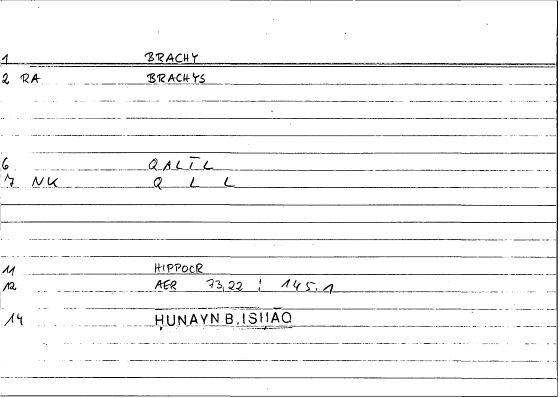 1 BRACHY
2 RA BRACHYS
6 QALĪL
7 NK Q L L
11 HIPPOCR
12 AER 73,22 : 145.1
14 ḤUNAYN B. ISḤĀQ